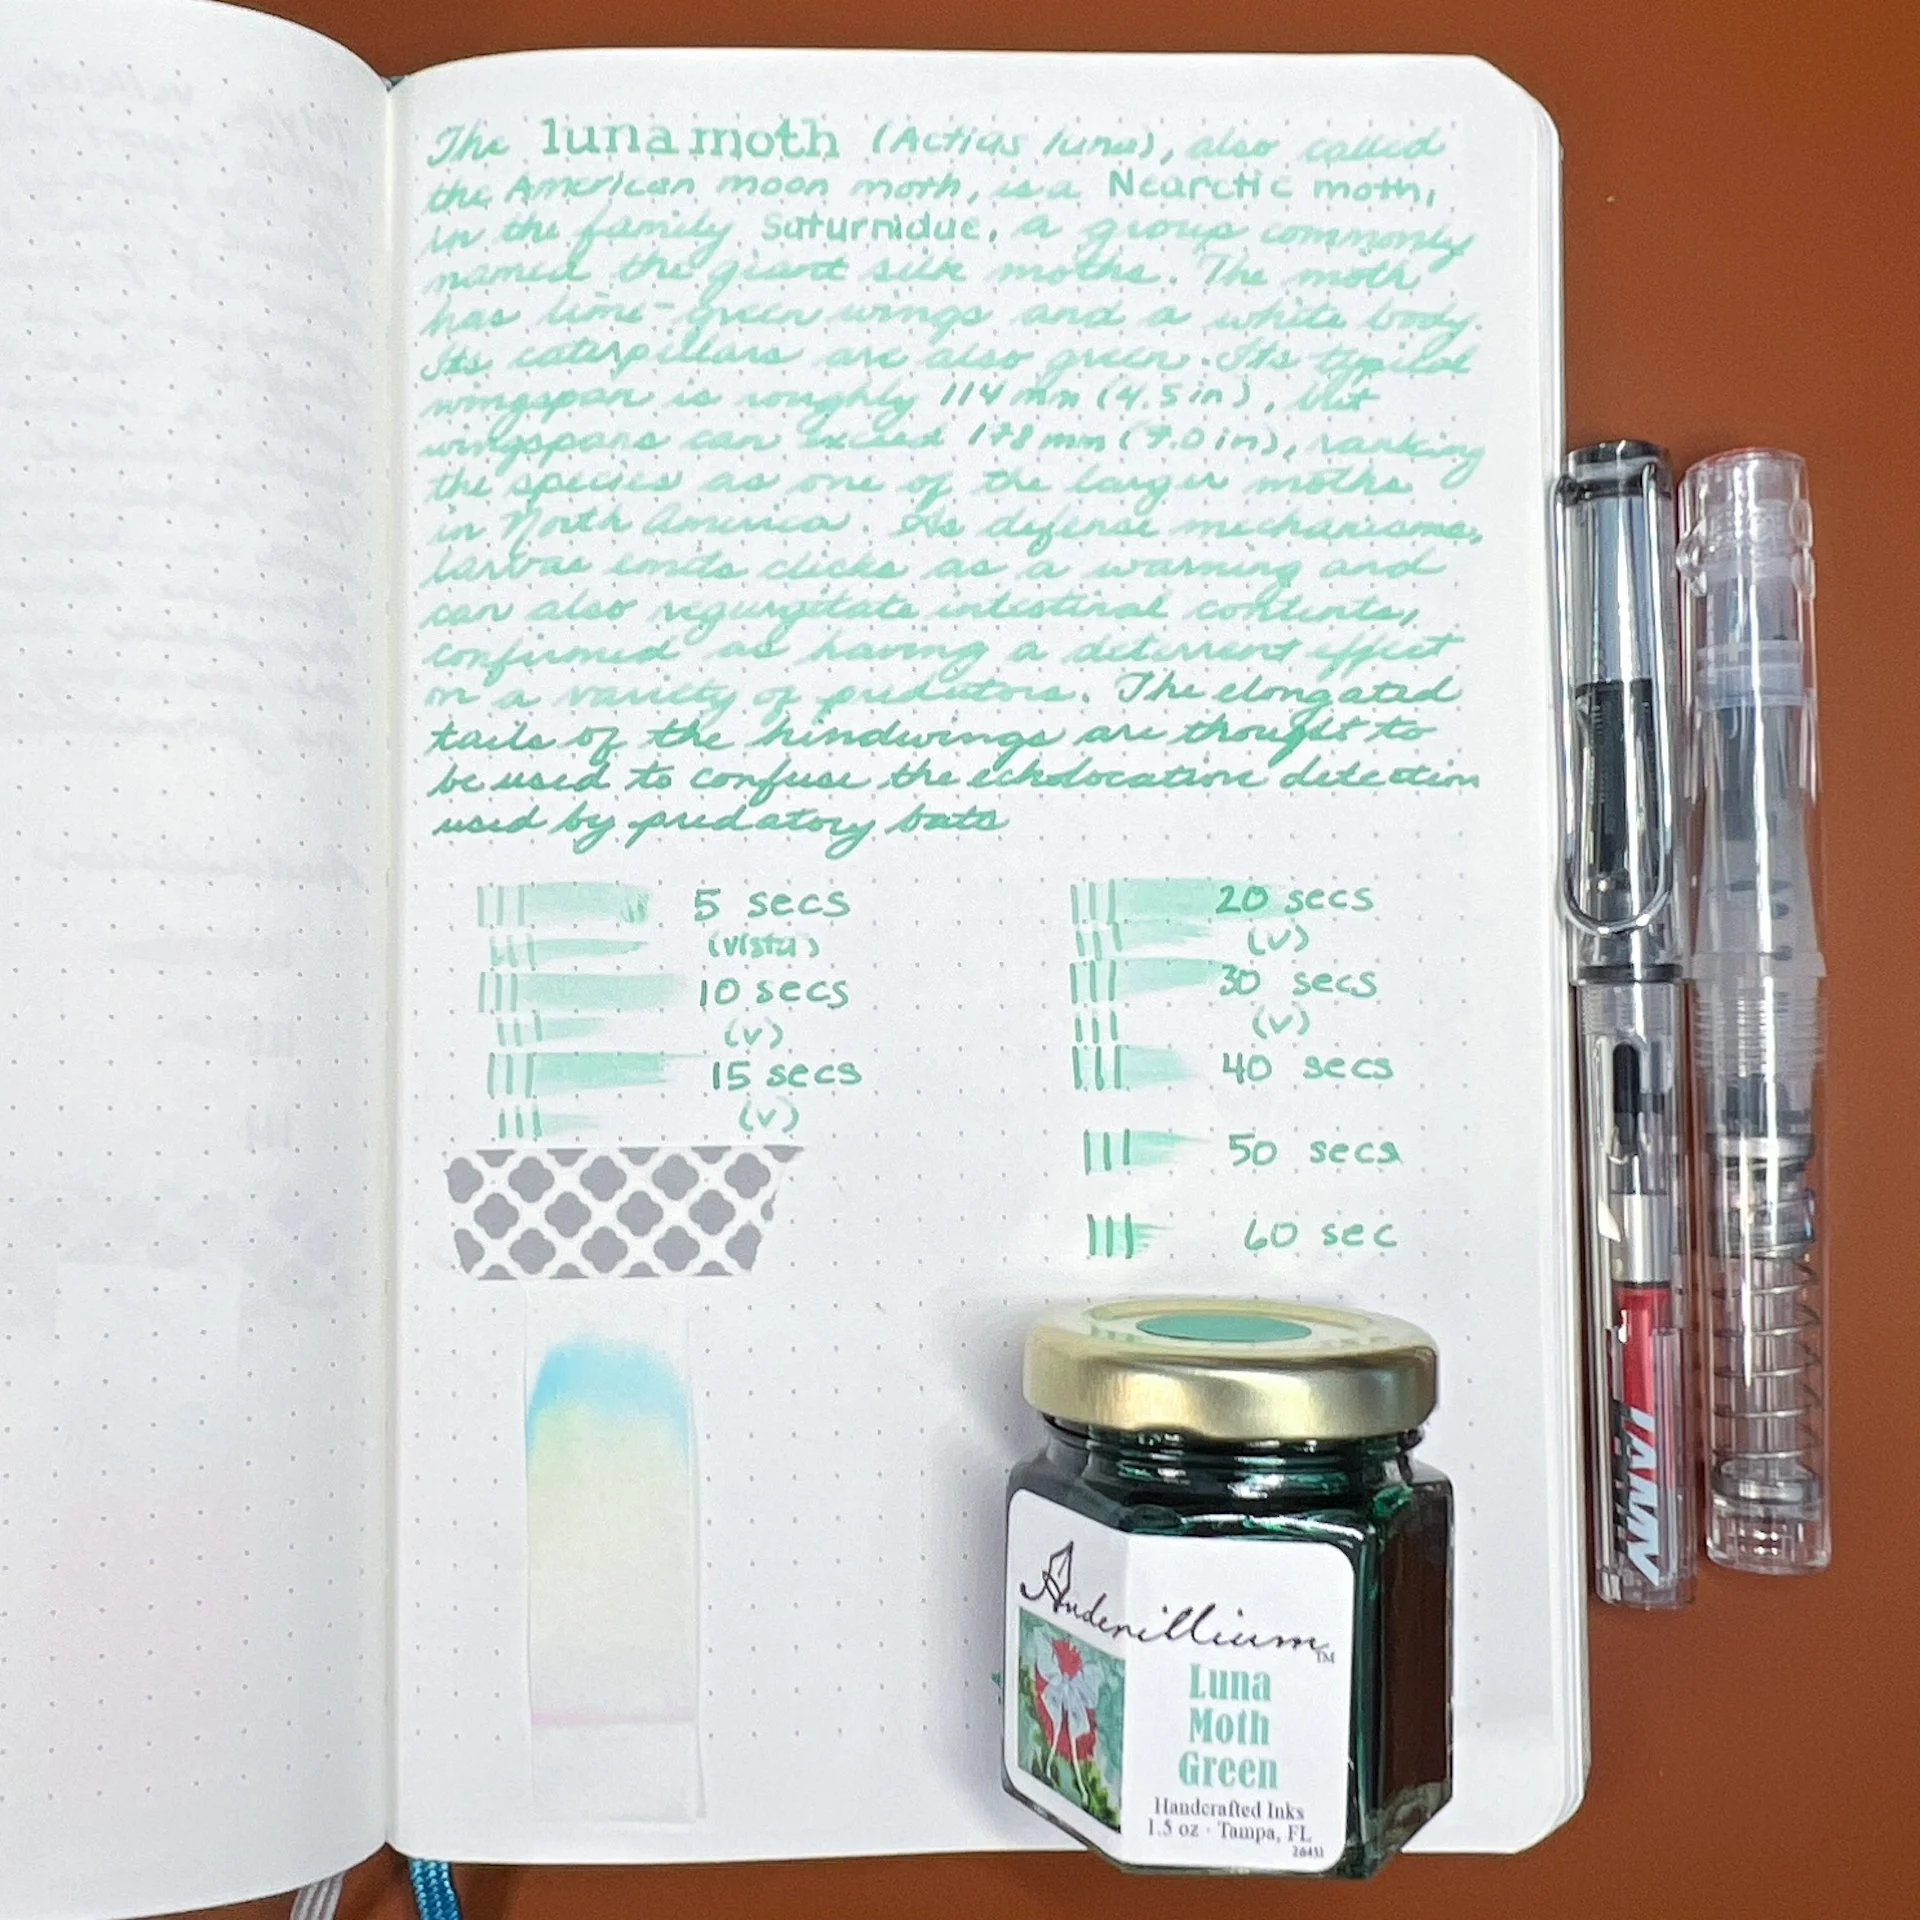 The luna moth (Actias luna), also called
the American moon moth, is a Nearctic moth,
in the family Saturnidae, a group commonly
named the giant silk moths. The moth
has lime-green wings and a white body.
Its caterpillars are also green. Its typical
wingspan is roughly 114 mm (4.5 in), but
wingspans can exceed 178 mm (7.0 in), ranking
the species as one of the larger moths
in North America. As defense mechanisms,
larvae emits clicks as a warning and
can also regurgitate intestinal contents,
confirmed as having a deterrent effect
on a variety of predators. The elongated
tails of the hindwings are thought to
be used to confuse the echolocation detection
used by predatory bats
5 secs
(vista)
10 secs
(v)
15 secs
(v)
20 secs
(v)
30 secs
(v)
40 secs
50 secs
60 sec
LAMY
Anderillium™
Luna
Moth
Green
Handcrafted Inks
1.5 oz · Tampa, FL